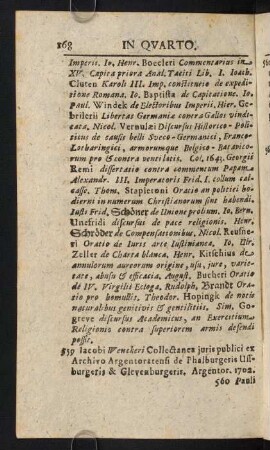 168 IN QVARTO.
Imperii. Io. Henr. Boecleri Commentarius in
XV. Capita priora Anal. Taciti Lib. I. Ioach.
Cluten Karoli III. Imp. constitutio de expedi-
tione Romana. Io. Baptista de Capitatione. Io.
Paul. Windek de Electoribus Imperii. Hier. Ge-
brilerii Libertas Germania contra Gallos vindi-
cata, Nicol. Vernulæi Discursus Historico-Poli-
ticus de causis belli Sveco-Germanici, Franco-
Lotharingici, armorumque Belgico-Batavico-
rum pro & contra ventilatis. Col. 1641. Georgii
Remi dissertatio contra commentum Papam
Alexandr. III. Imperatoris Frid. I. collum cal-
casse. Thom. Stapletoni Oratio an politici ho-
dierni in numerum Christianorum sint habendi.
Iusti Frid. Schöner de Unione probum. Io. Bern.
Unefridi discursus de pace religionis. Henr.
Schröder de Compensationibus. Nicol. Reusne-
ri Oratio de Iuris arte Iustinianea. Io. Ulr.
Zeller de Charta blanca. Henr. Kitschius de
annulorum aureorum origine, usu, jure, varie-
tate, abusu & efficacia, August. Bucheri Oratio
de IV. Virgilii Ecloga. Rudolph. Brandt Orat
io pro bombillis. Theodor. Hopingk de notis
naturalibus genitivis & gentilitiis. Sim. Go-
greve discursus Academicus, an Exercitium
Religionis contra superiorem armis defendi
posse.
559 Iacobi Wenckeri Collectanea juris publici ex
Archivo Argentoratensi de Phalburgeris Uss-
burgeris & Glevenburgeris, Argentor. 1702.
560 Pauli